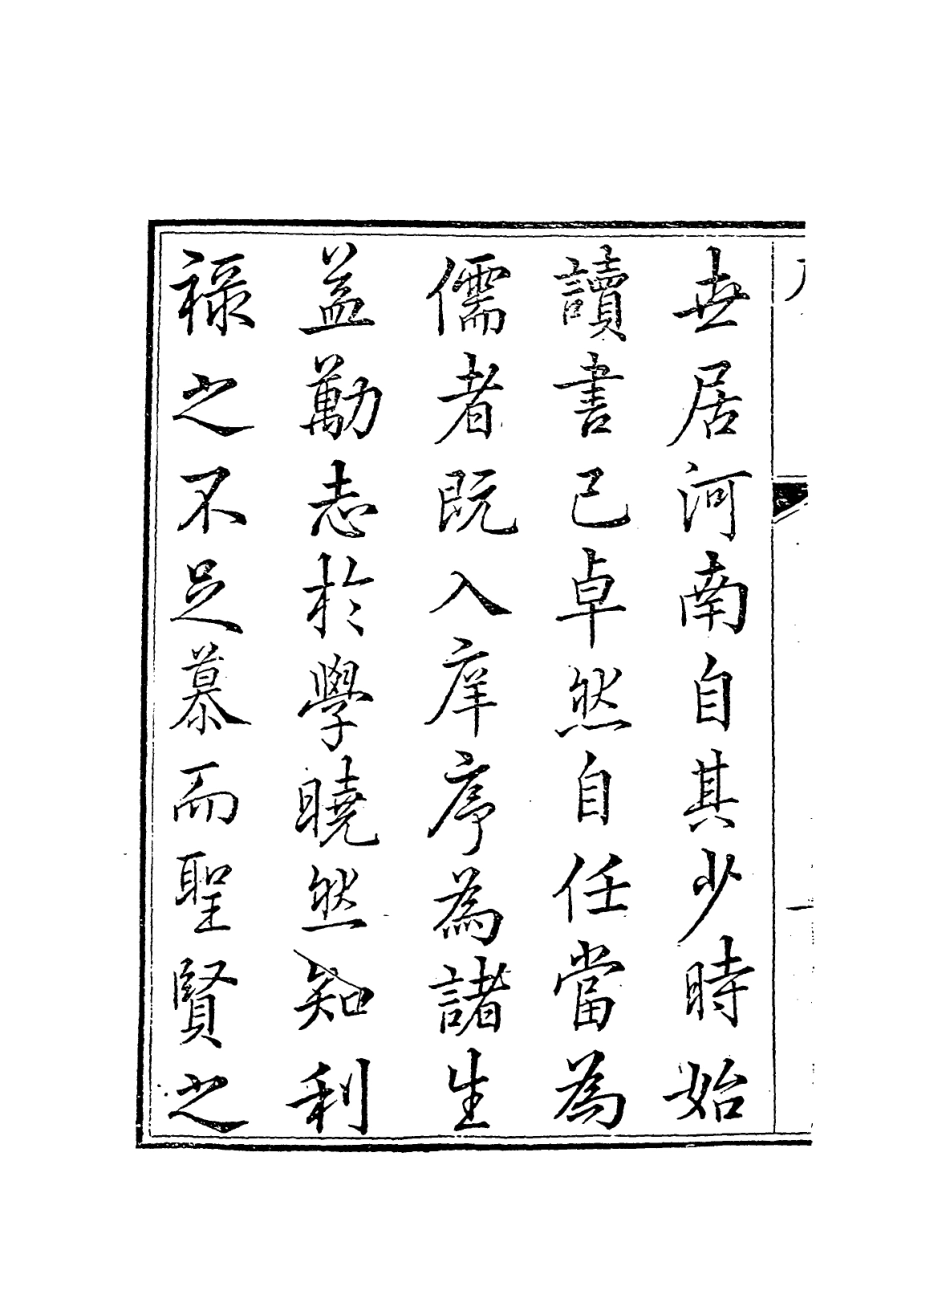 世居河南自其少時始
讀書已卓然自任當為
儒者既入庠序為諸生
益勵志於學曉然知利
祿之不足慕而聖賢之